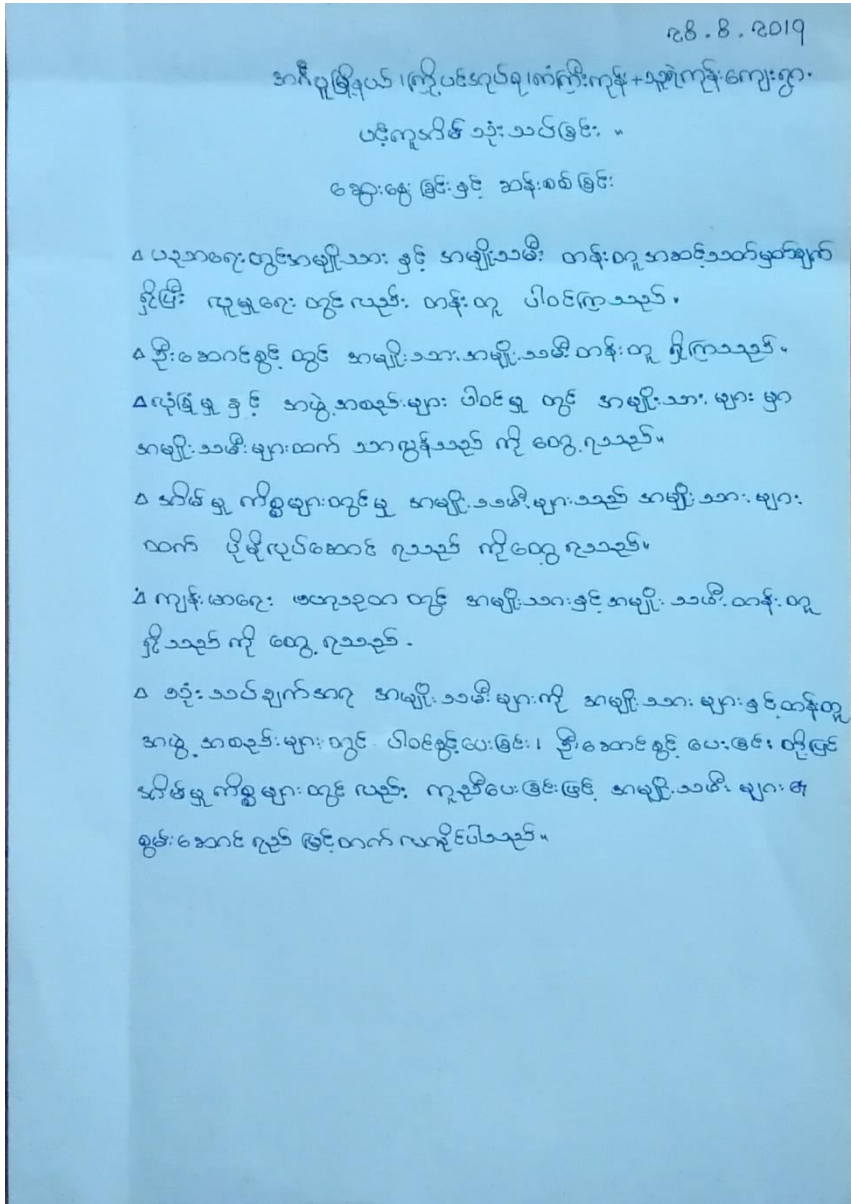 ၎8.8.၎019
အင်္ဂပူမြို့နယ်၊ကြို့ပင်အုပ်စု၊တံကြီးကုန်း+သူရဲကုန်းကျေးရွာ.
ပင့်ကူအိမ် သုံးသပ်ခြင်း ။
ဆွေးနွေးခြင်းနှင့် ဆန်းစစ်ခြင်း
∆ ပညာရေးတွင်အမျိုးသား နှင့် အမျိုးသမီး တန်းတူ အဆင့်သတ်မှတ်ချက်
ရှိပြီး လူမှုရေး တွင်လည်း တန်းတူ ပါဝင်ကြသည်။
∆ ဦးဆောင်ခွင့် တွင် အမျိုးသား၊အမျိုးသမီးတန်းတူ ရှိကြသည်။
∆ လုံခြုံမှု နှင့် အဖွဲ့အစည်းများ ပါဝင်မှု တွင် အမျိုးသား များ မှာ
အမျိုးသမီးများထက် သာလွန်သည် ကို တွေ့ရသည်။
∆ အိမ်မှု ကိစ္စများတွင်မူ အမျိုးသမီးများသည် အမျိုးသား များ
ထက် ပိုမိုလုပ်ဆောင် ရသည် ကိုတွေ့ရသည်။
∆ ကျန်းမာရေး ဗဟုသုတ တွင် အမျိုးသားနှင့်အမျိုးသမီး တန်းတူ
ရှိသည် ကို တွေ့ရသည်.
∆ သုံးသပ်ချက်အရ အမျိုးသမီးများကို အမျိုးသား များနှင့်တန်းတူ
အဖွဲ့အစည်းများ တွင် ပါဝင်ခွင့်ပေးခြင်း၊ ဦးဆောင်ခွင့် ပေးခြင်း တို့ဖြင့်
အိမ်မှုကိစ္စများတွင်လည်း ကူညီပေးခြင်းဖြင့် အမျိုးသမီး များ၏
စွမ်းဆောင်ရည် မြှင့်တက် လာနိုင်ပါသည်။